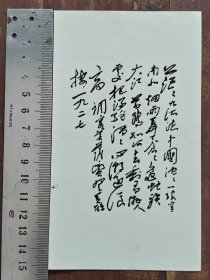 茫〻九派流中國沉〻一線穿
南北烟雨莽苍〻龜蛇鎖
大江黄鹤知何去剩有游人
處把酒酹滔〻心潮逐浪
高 調寄菩薩蠻登黄鹤
樓一九二七
STAINLESS
1
2
3
4
5
6
7
8
9
10
11
12
13
14
15